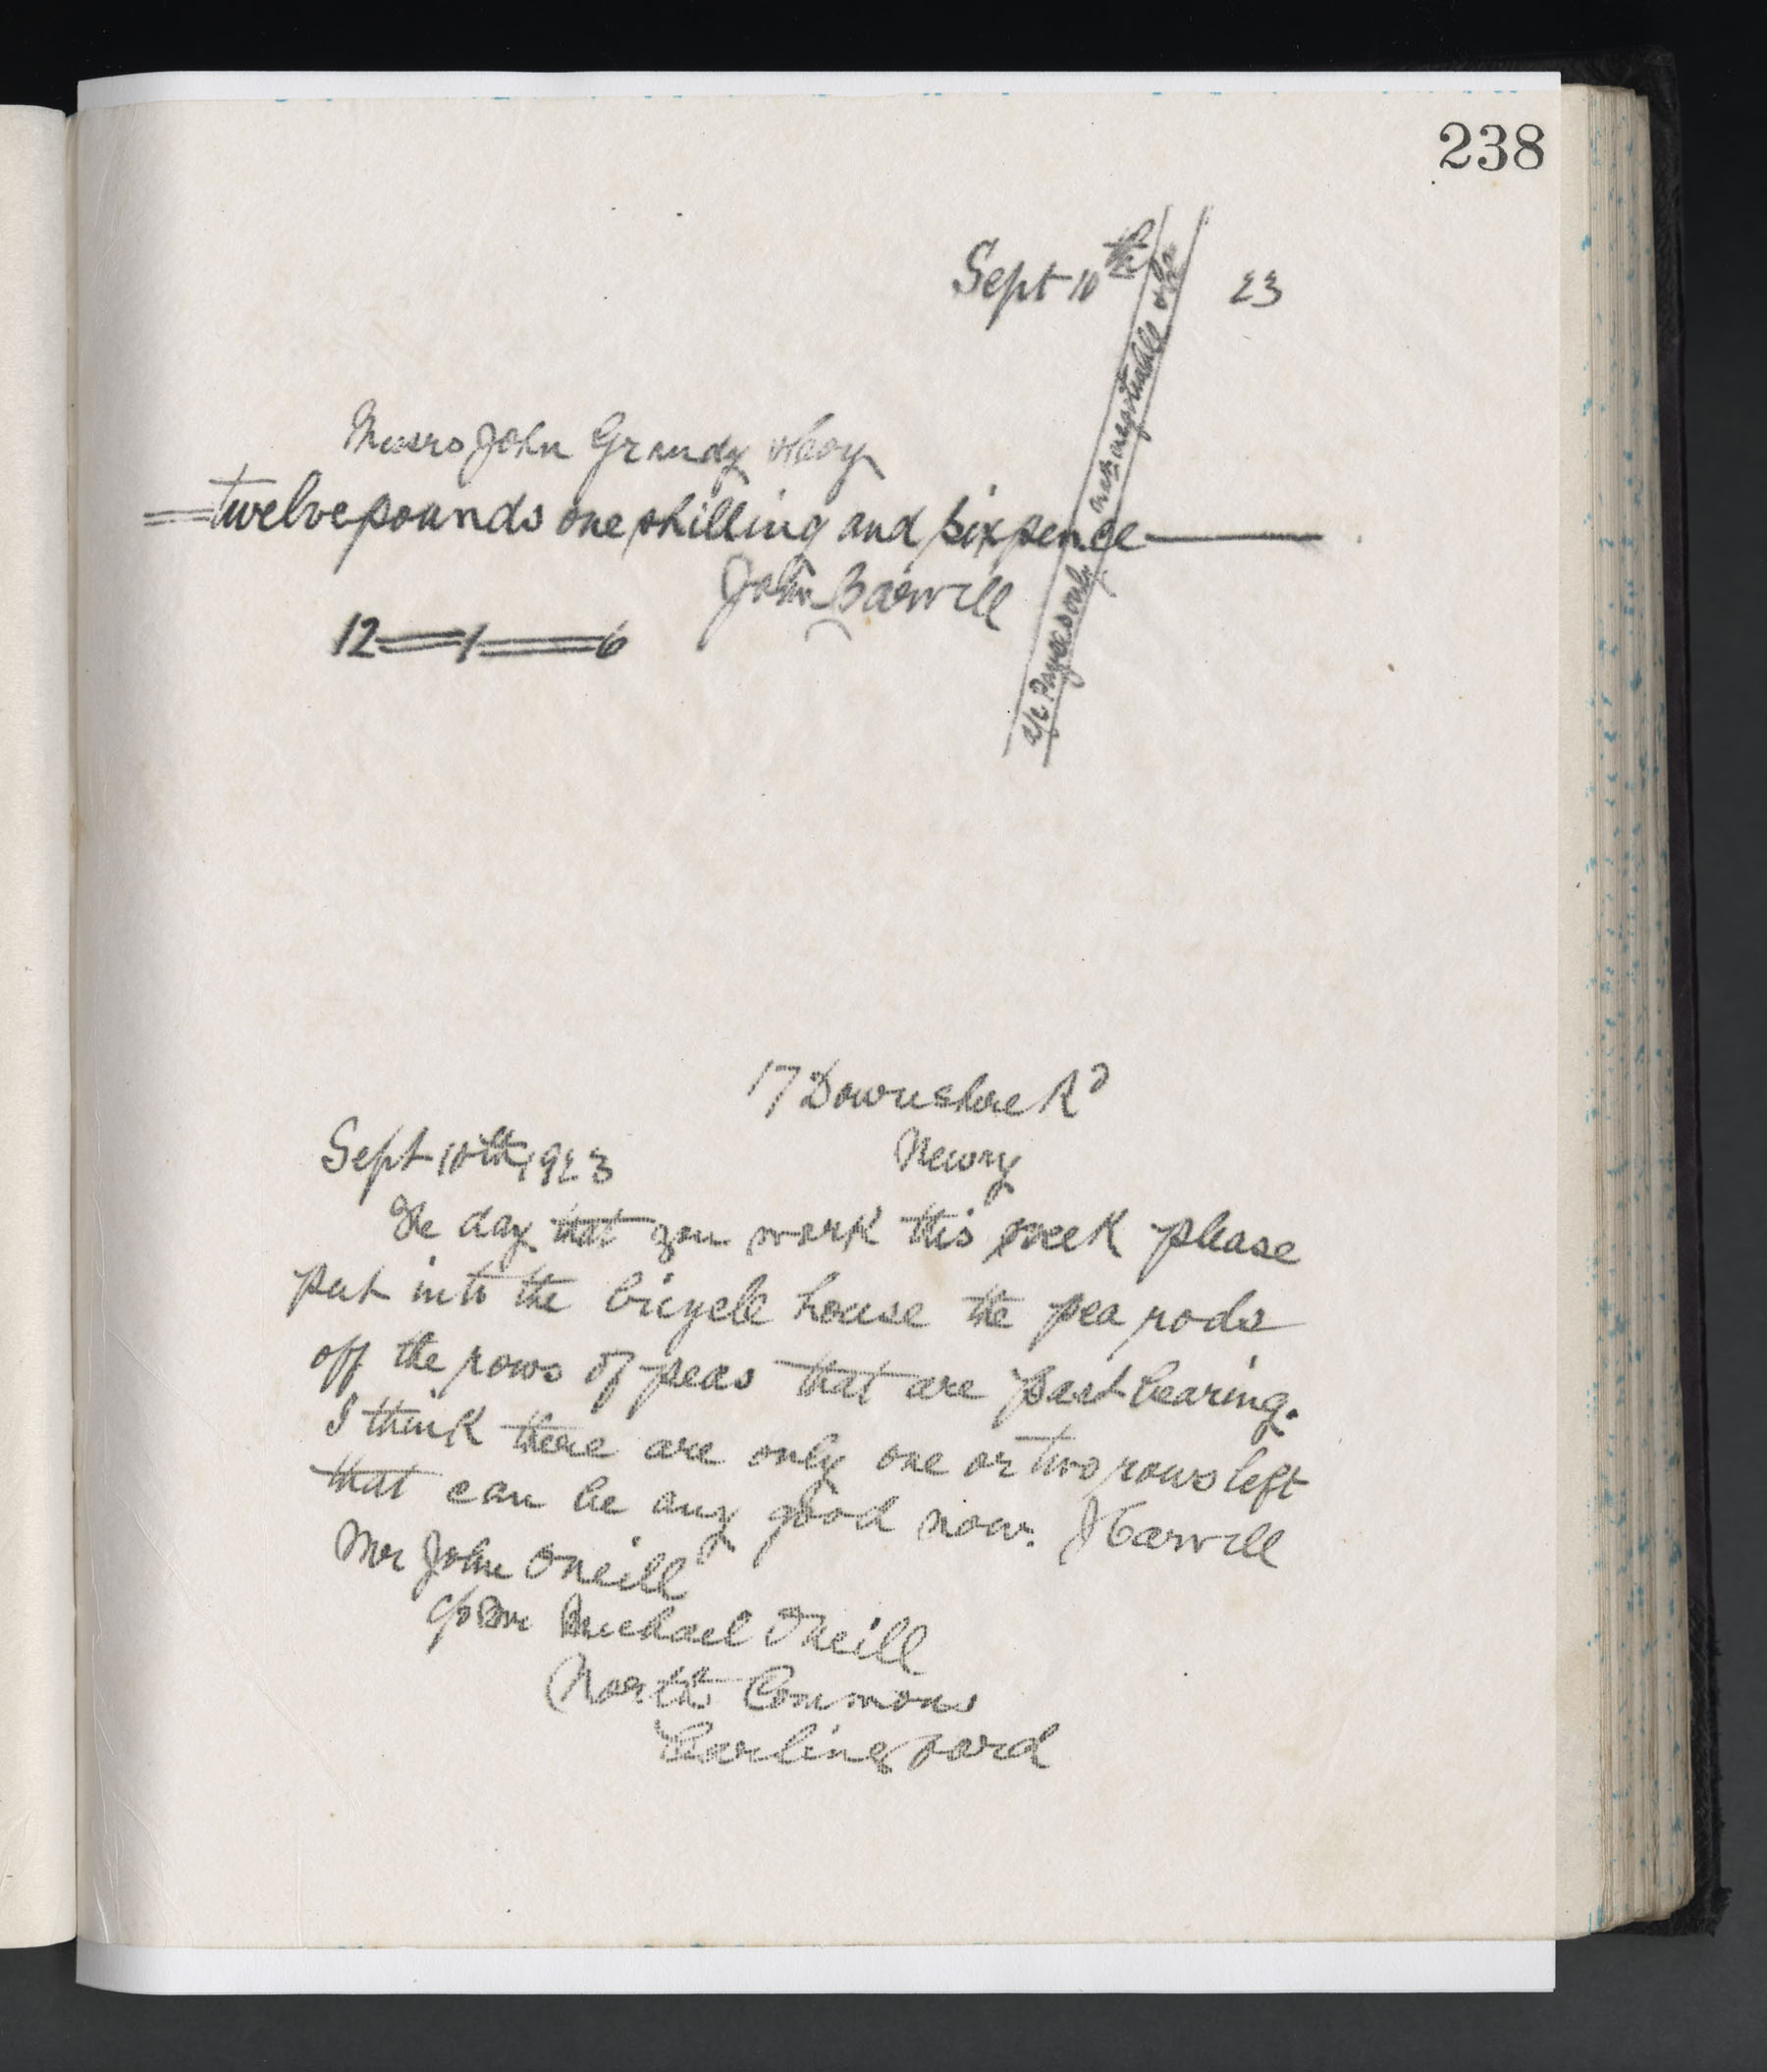 238
Sept 10th 23
Messrs John Grandy & Coy
twelve pounds one shilling and sixpence
John Barwill
12 1 6
a/c Payees only not negotiable & Co
17 Downshire Rd
Newry
Sept 10th 1923
The day that you work this week please
put into the bicycle house the pea pods
off the rows of peas that are past bearing.
I think there are only one or two rows left
that can be any good now. J Carvill
Mr John O'Neill
c/o Mr Michael O'Neill
North Commons
Carlingford